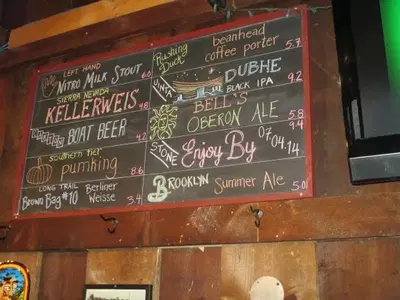 LEFT HAND
NITRO MILK STOUT 6.0
SIERRA NEVADA
KELLERWEIS 4.8
BOAT BEER 4.2
southern tier
pumking 8.6
LONG TRAIL
Brown Bag #10 Berliner Weisse 3.4
Rushing Duck
beanhead coffee porter 5.7
UINTA
DUBHE
BLACK IPA 9.2
BELL'S
OBERON ALE 5.8
STONE
Enjoy By 07.04.14 9.4
BROOKLYN Summer Ale 5.0